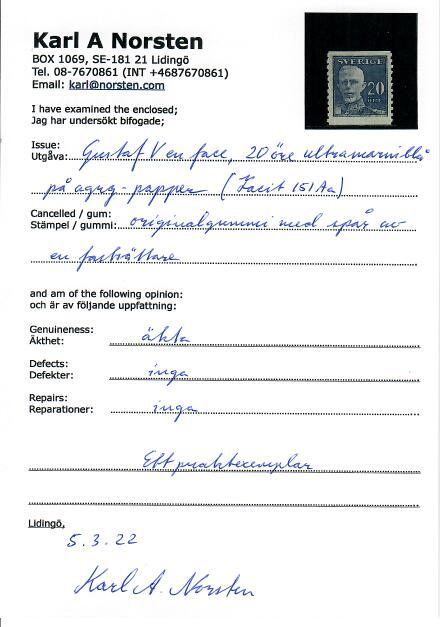 Karl A Norsten
BOX 1069, SE-181 21 Lidingö
Tel. 08-7670861 (INT +4687670861)
Email: karl@norsten.com
SVERIGE
20
ÖRE
I have examined the enclosed;
Jag har undersökt bifogade;
Issue:
Utgåva: Gustaf V en face, 20 öre ultramarinblå
på agrg-papper (Facit 151Aa)
Cancelled / gum:
Stämpel / gummi: originalgummi med spår av
en fastsättare
and am of the following opinion:
och är av följande uppfattning:
Genuineness:
Äkthet: äkta
Defects:
Defekter: inga
Repairs:
Reparationer: inga
Ett praktexemplar
Lidingö,
5.3.22
Karl A. Norsten